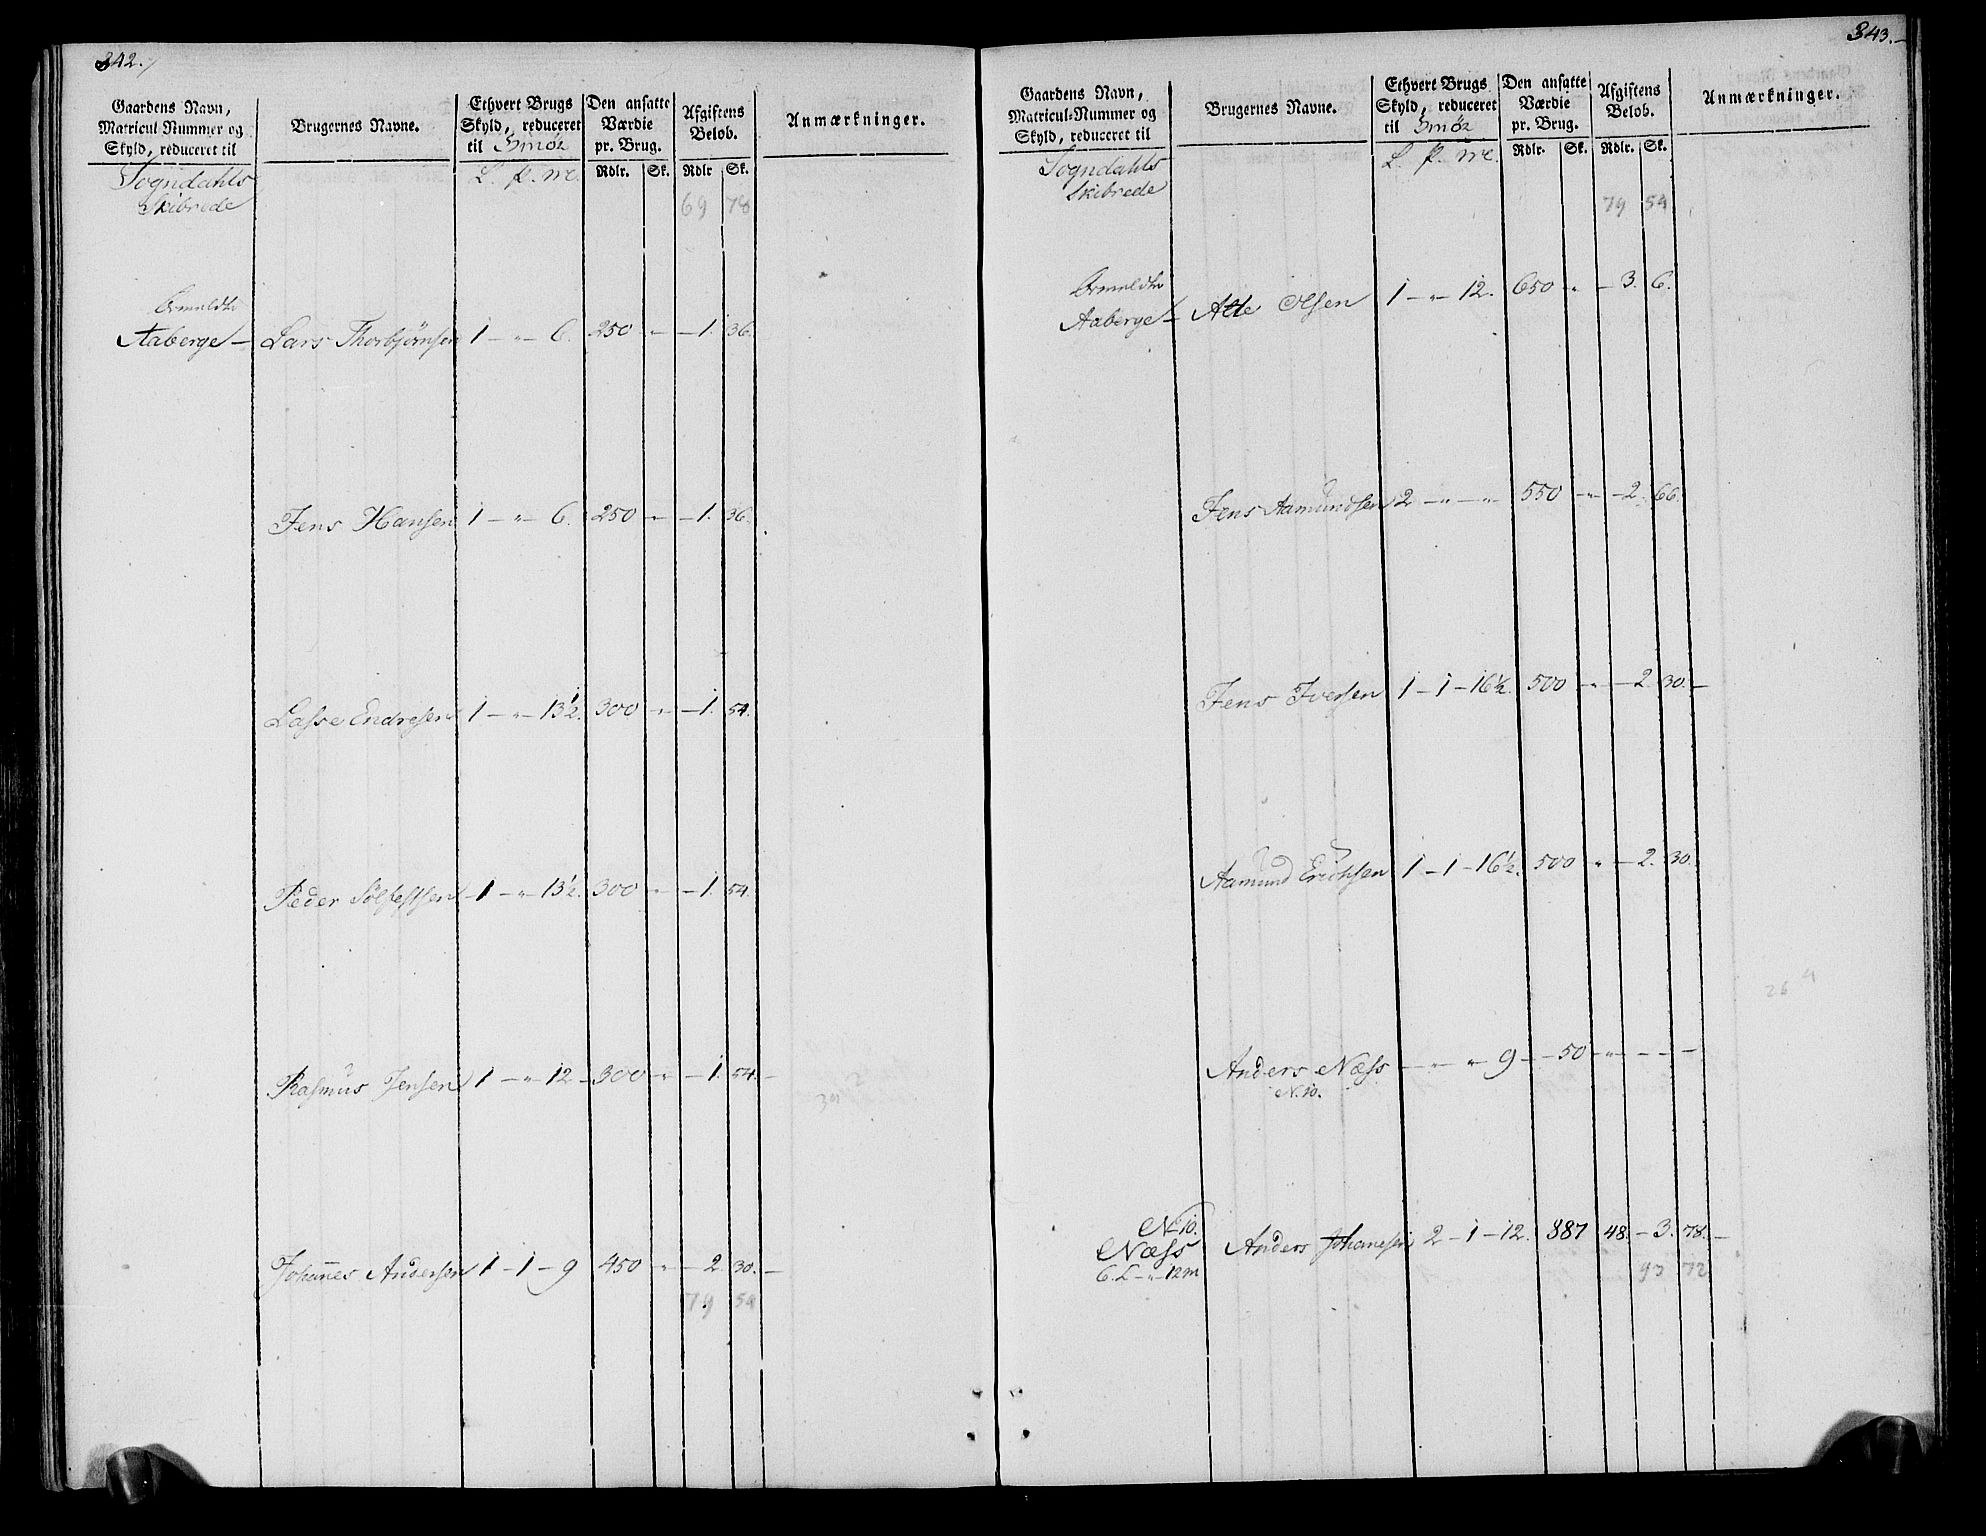 342.
Gaardens Navn,
Matricul-Nummer og
Skyld, reduceret til
Brugernes Navne.
Ethvert Brugs
Skyld, reduceret
til Smør
Den ansatte
Værdie
pr. Brug.
Afgiftens
Beløb.
Anmærkninger.
L. P. mr.
Rdlr. Sk. Rdlr Sk.
Sogndahls
Skibrede
69 78
Aaberge — Lars Thorbjørnsen 1 - „ - 6. 250 „ - 1. 36.
Jens Hansen 1 - „ - 6. 250 „ - 1. 36.
Lasse Endresen 1 - „ - 13½. 300 „ - 1. 54.
Peder Sølfestsen 1 - „ - 13½. 300 „ - 1. 54.
Rasmus Jensen 1 - „ - 12 - 300 „ - 1. 54. -
Johannes Andersen 1 - 1 - 9 450 „ - 2. 30. -
79 54
343. -
Gaardens Navn,
Matricul-Nummer og
Skyld, reduceret til
Brugernes Navne.
Ethvert Brugs
Skyld, reduceret
til Smør
Den ansatte
Værdie
pr. Brug.
Afgiftens
Beløb.
Anmærkninger.
L. P. mr.
Rdlr. Sk. Rdlr. Sk.
Sogndahls
Skibrede
79 54
Aaberge — Atle Olsen 1 - „ - 12. 650 „ - 3. 6.
Jens Aamundsen 2 - „ - „ 550 - „ - 2. 66.
Jens Iversen 1 - 1 - 16½. 500 - „ - 2. 30. -
Aamund Erichsen 1 - 1 - 16½. 500 „ - 2. 30.
26 4
Anders Næss - „ - „ 9 - - 50 - „ - - - -
N. 10.
N. 10.
Næss Anders Johanesen 2 - 1 - 12. 887 48. - 3. 78. -
6. L - „ - 12 m
93 72